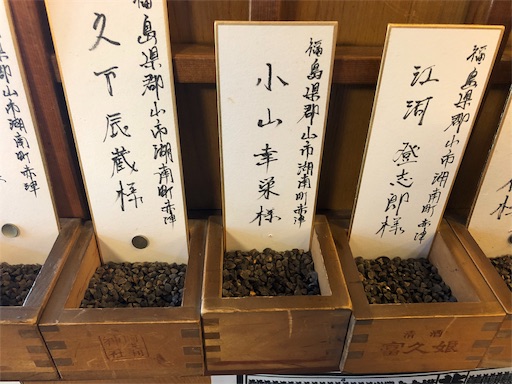 福島県郡山市湖南町赤津
久下辰蔵様
福島県郡山市湖南町赤津
小山幸栄様
福島県郡山市湖南町赤津
江河登志郎様
清酒
富久娘